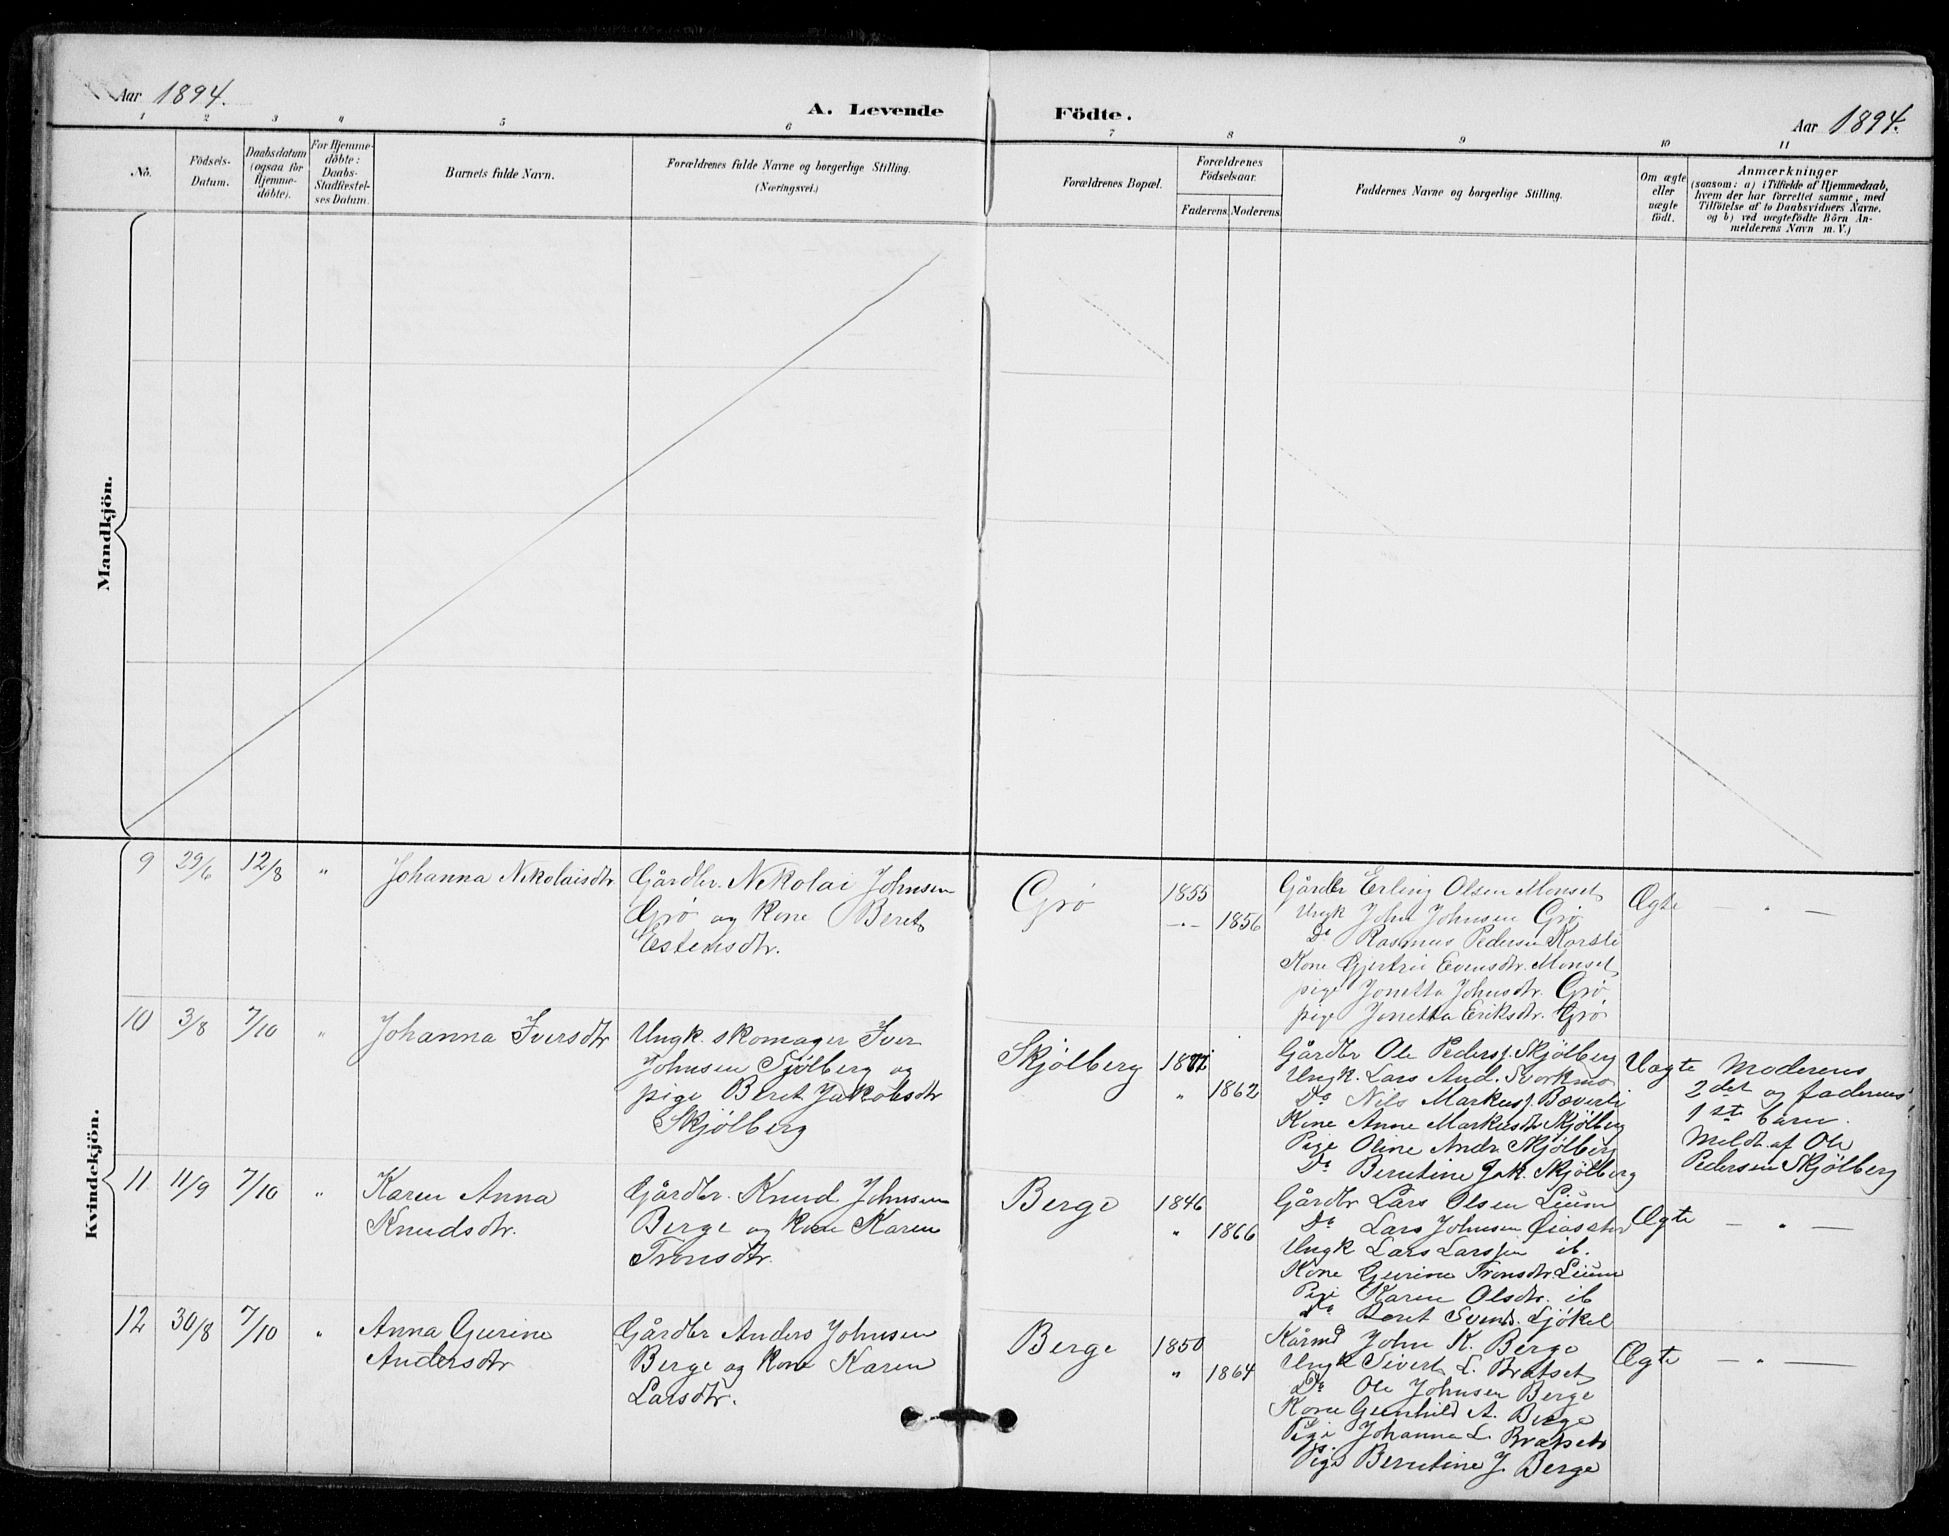 Aar 1894.
A. Levende Födte.
Aar 1894.
1 2 3 4 5 6 7 8 9 10 11
No.
Födsels-
Datum.
Daabsdatum
(ogsaa for
Hjemme-
döbte).
For Hjemme-
döbte:
Daabs-
Stadfæstel-
ses Datum.
Barnets fulde Navn.
Forældrenes fulde Navne og borgerlige Stilling.
(Næringsvei.)
Forældrenes Bopæl.
Forældrenes
Födselsaar.
Faderens. Moderens.
Faddernes Navne og borgerlige Stilling.
Om ægte
eller
uægte
födt.
Anmærkninger
(saasom: a) i Tilfælde af Hjemmedaab,
hvem der har forrettet samme, med
Tilföielse af to Daabsvidners Navne.
og b) ved uægtefödte Börn An-
melderens Navn m. V.)
Mandkjön.
Kvindekjön.
9 29/6 12/8 "
Johanna Nikolaisdtr
Gårdbr. Nikolai Johnsen
Grø og kone Beret
Estensdtr.
Grø
1855
-"- 1856
Gårdbr Erling Olsen Monset
Ungk John Johnsen Grø
Do Rasmus Pedersen Karsti
Kone Gjertrü Evensdtr. Monset
pige Jonetta Johnsdtr. Grø
pige Jonetta Eriksdtr. Grø
Ægte
— " —
10 3/8 7/10 "
Johanna Iversdtr
Ungk. skomager Iver
Johnsen Sjølberg og
pige Beret Jakobsdtr
Skjølberg
Skjølberg
" 1862
Gårdbr Ole Peders. Skjølberg
Ungk. Lars And. Svorkmo
Do Nils Markuss. Bæverli
Kone Anne Markusdtr Skjølberg
Pige Oline Andr. Skjølberg
Do Berntine Jak. Skjølberg
Uægte
Moderens
2det og faderens
1ste barn.
Meldt. af Ole
Pedersen Skjølberg
11 11/9 7/10 "
Karen Anna
Knudsdtr.
Gårdbr. Knud Johnsen
Berge og kone Karen
Tronsdtr.
Berge
1846
" 1866
Gårdbr Lars Olsen Lium
Do Lars Johnsen
Ungk Lars Larssen ib.
Kone Gurine Tronsdtr. Lium
Pige Karen Olsdtr. ib
Do Beret Svends. Sjøkel
Ægte
— " —
12 30/8 7/10 "
Anna Gurine
Andersdtr
Gårdbr Anders Johnsen
Berge og kone Karen
Larsdtr.
Berge
1850
" 1864
Kårmd John K. Berge
Ungk Sivert L. Bratset
Do Ole Johnsen Berge
Kone Gunhild A. Berge
Pige Johanna L. Bratset
Pige Berntine J. Berge
Ægte
— " —